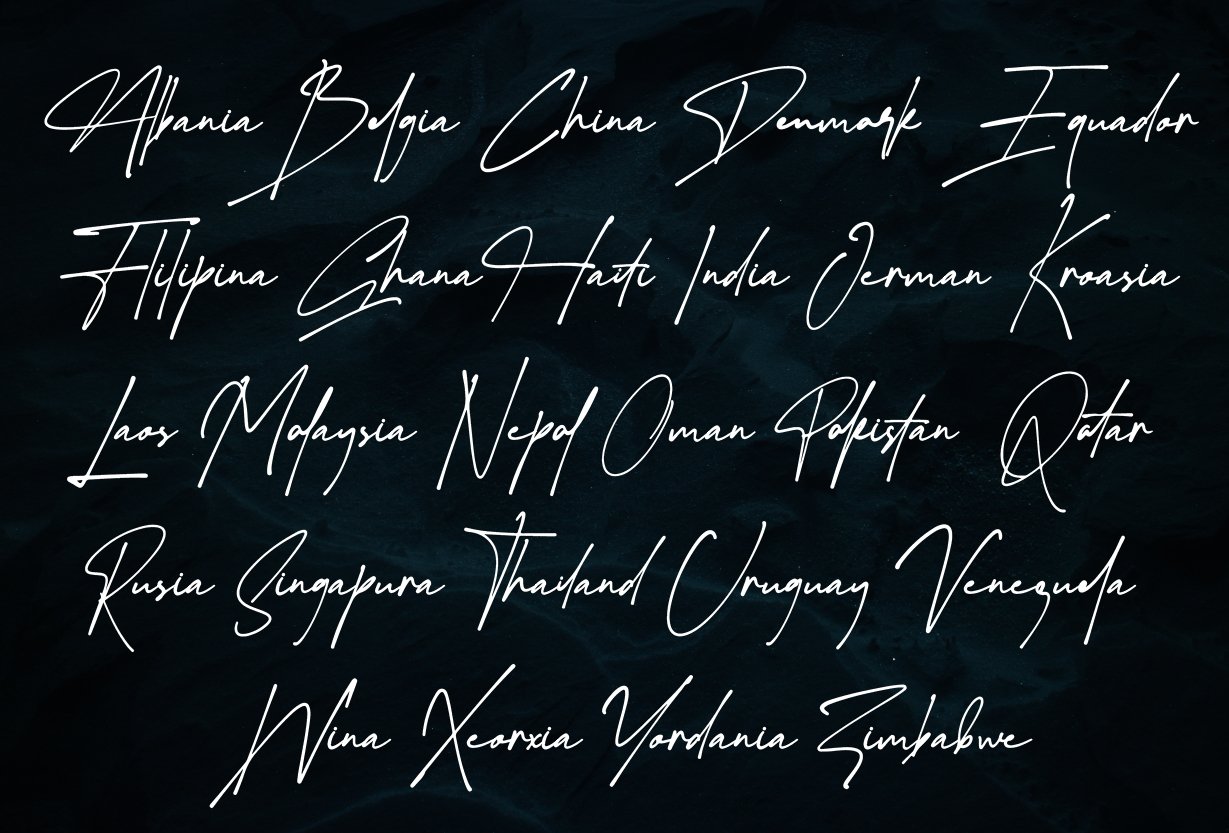 Albania Belgia China Denmark Equador
Filipina Ghana Haiti India Jerman Kroasia
Laos Malaysia Nepal Oman Pakistan Qatar
Rusia Singapura Thailand Uruguay Venezuela
Wina Xeorxia Yordania Zimbabwe